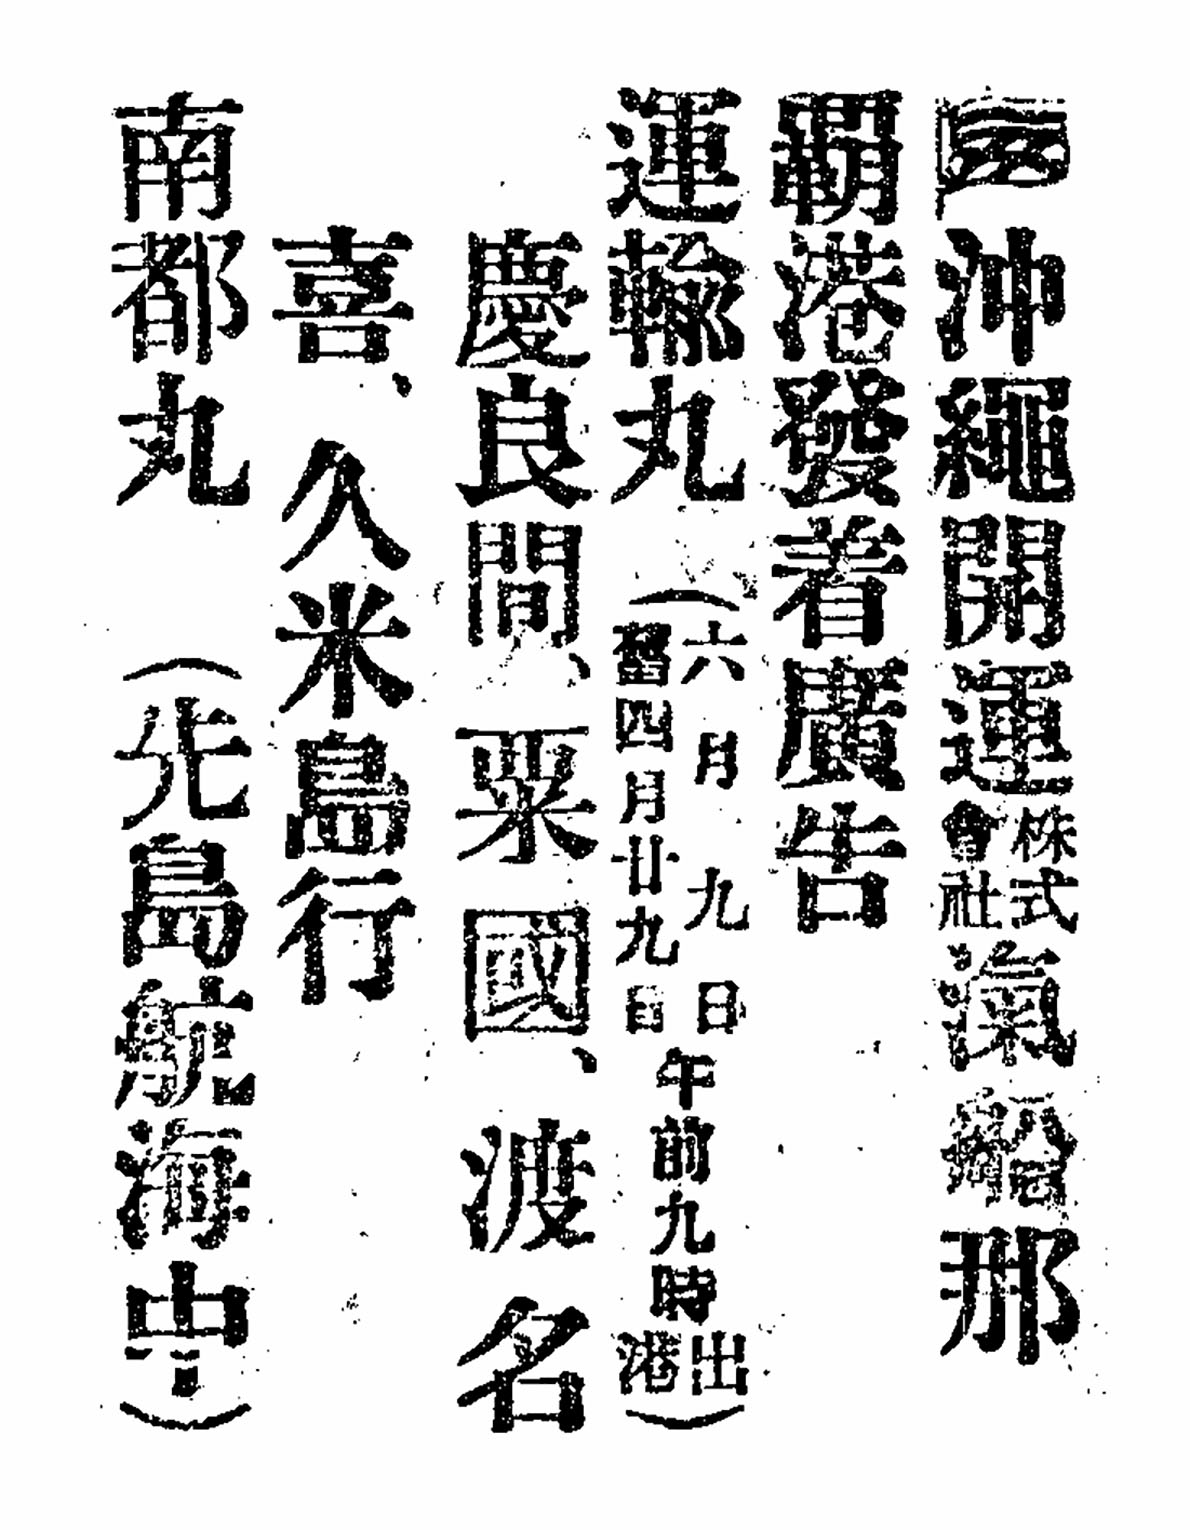 沖縄開運株式會社滊船那
覇港發着廣告
運輸丸(六月九日舊四月廿九日午前九時出港)
慶良間、粟國、渡名
喜、久米島行
南都丸(先島航海中)